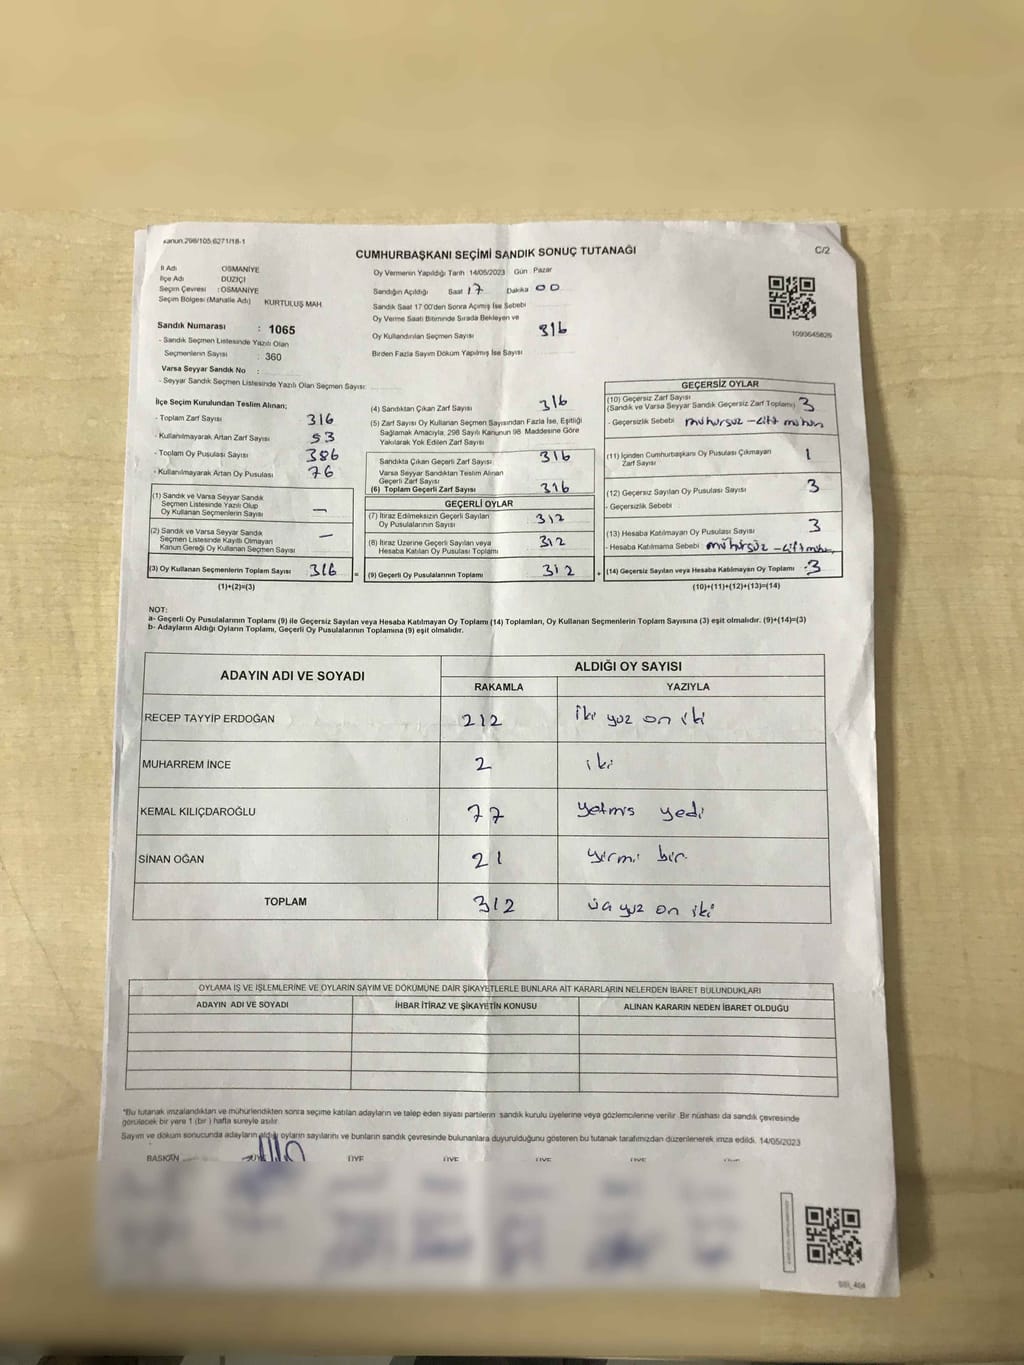 Kanun:298/105 6271/18-1
CUMHURBAŞKANI SEÇİMİ SANDIK SONUÇ TUTANAĞI
C/2
İl Adı OSMANİYE
İlçe Adı DÜZİÇİ
Seçim Çevresi : OSMANİYE
Seçim Bölgesi (Mahalle Adı) KURTULUŞ MAH.
Sandık Numarası : 1065
- Sandık Seçmen Listesinde Yazılı Olan
Seçmenlerin Sayısı : 360
Varsa Seyyar Sandık No :
- Seyyar Sandık Seçmen Listesinde Yazılı Olan Seçmen Sayısı:
Oy Vermenin Yapıldığı Tarih 14/05/2023 Gün : Pazar
Sandığın Açıldığı Saat 17 Dakika 00
Sandık Saat 17:00'den Sonra Açılmış İse Sebebi
Oy Verme Saati Bitiminde Sırada Bekleyen ve
Oy Kullandırılan Seçmen Sayısı 316
Birden Fazla Sayım Döküm Yapılmış İse Sayısı
1093645826
İlçe Seçim Kurulundan Teslim Alınan;
- Toplam Zarf Sayısı 316
- Kullanılmayarak Artan Zarf Sayısı 53
- Toplam Oy Pusulası Sayısı 386
- Kullanılmayarak Artan Oy Pusulası 76
(1) Sandık ve Varsa Seyyar Sandık
Seçmen Listesinde Yazılı Olup
Oy Kullanan Seçmenlerin Sayısı —
(2) Sandık ve Varsa Seyyar Sandık
Seçmen Listesinde Kayıtlı Olmayan
Kanun Gereği Oy Kullanan Seçmen Sayısı —
(3) Oy Kullanan Seçmenlerin Toplam Sayısı 316 =
(1)+(2)=(3)
(4) Sandıktan Çıkan Zarf Sayısı 316
(5) Zarf Sayısı Oy Kullanan Seçmen Sayısından Fazla İse, Eşitliği
Sağlamak Amacıyla, 298 Sayılı Kanunun 98. Maddesine Göre
Yakılarak Yok Edilen Zarf Sayısı
Sandıkta Çıkan Geçerli Zarf Sayısı 316
Varsa Seyyar Sandıktan Teslim Alınan
Geçerli Zarf Sayısı
(6) Toplam Geçerli Zarf Sayısı 316
GEÇERLİ OYLAR
(7) İtiraz Edilmeksizin Geçerli Sayılan
Oy Pusulalarının Sayısı 312
(8) İtiraz Üzerine Geçerli Sayılan veya
Hesaba Katılan Oy Pusulası Toplamı 312
(9) Geçerli Oy Pusulalarının Toplamı 312 +
GEÇERSİZ OYLAR
(10) Geçersiz Zarf Sayısı
(Sandık ve Varsa Seyyar Sandık Geçersiz Zarf Toplamı) 3
- Geçersizlik Sebebi mühürsüz - çift mühür
(11) İçinden Cumhurbaşkanı Oy Pusulası Çıkmayan
Zarf Sayısı 1
(12) Geçersiz Sayılan Oy Pusulası Sayısı 3
- Geçersizlik Sebebi
(13) Hesaba Katılmayan Oy Pusulası Sayısı 3
- Hesaba Katılmama Sebebi mühürsüz - çift mühür
(14) Geçersiz Sayılan veya Hesaba Katılmayan Oy Toplamı 3
(10)+(11)+(12)+(13)=(14)
NOT:
a- Geçerli Oy Pusulalarının Toplamı (9) ile Geçersiz Sayılan veya Hesaba Katılmayan Oy Toplamı (14) Toplamları, Oy Kullanan Seçmenlerin Toplam Sayısına (3) eşit olmalıdır. (9)+(14)=(3)
b- Adayların Aldığı Oyların Toplamı, Geçerli Oy Pusulalarının Toplamına (9) eşit olmalıdır.
ADAYIN ADI VE SOYADI ALDIĞI OY SAYISI
RAKAMLA YAZIYLA
RECEP TAYYİP ERDOĞAN 212 iki yüz on iki
MUHARREM İNCE 2 iki
KEMAL KILIÇDAROĞLU 77 yetmiş yedi
SİNAN OĞAN 21 yirmi bir
TOPLAM 312 üç yüz on iki
OYLAMA İŞ VE İŞLEMLERİNE VE OYLARIN SAYIM VE DÖKÜMÜNE DAİR ŞİKAYETLERLE BUNLARA AİT KARARLARIN NELERDEN İBARET BULUNDUKLARI
ADAYIN ADI VE SOYADI İHBAR İTİRAZ VE ŞİKAYETİN KONUSU ALINAN KARARIN NEDEN İBARET OLDUĞU
*Bu tutanak imzalandıktan ve mühürlendikten sonra seçime katılan adayların ve talep eden siyasi partilerin sandık kurulu üyelerine veya gözlemcilerine verilir. Bir nüshası da sandık çevresinde
görülecek bir yere 1 (bir) hafta süreyle asılır.
Sayım ve döküm sonucunda adayların aldığı oyların sayılarını ve bunların sandık çevresinde bulunanlara duyurulduğunu gösteren bu tutanak tarafımızdan düzenlenerek imza edildi. 14/05/2023
BAŞKAN ÜYE ÜYE ÜYE ÜYE ÜYE ÜYE